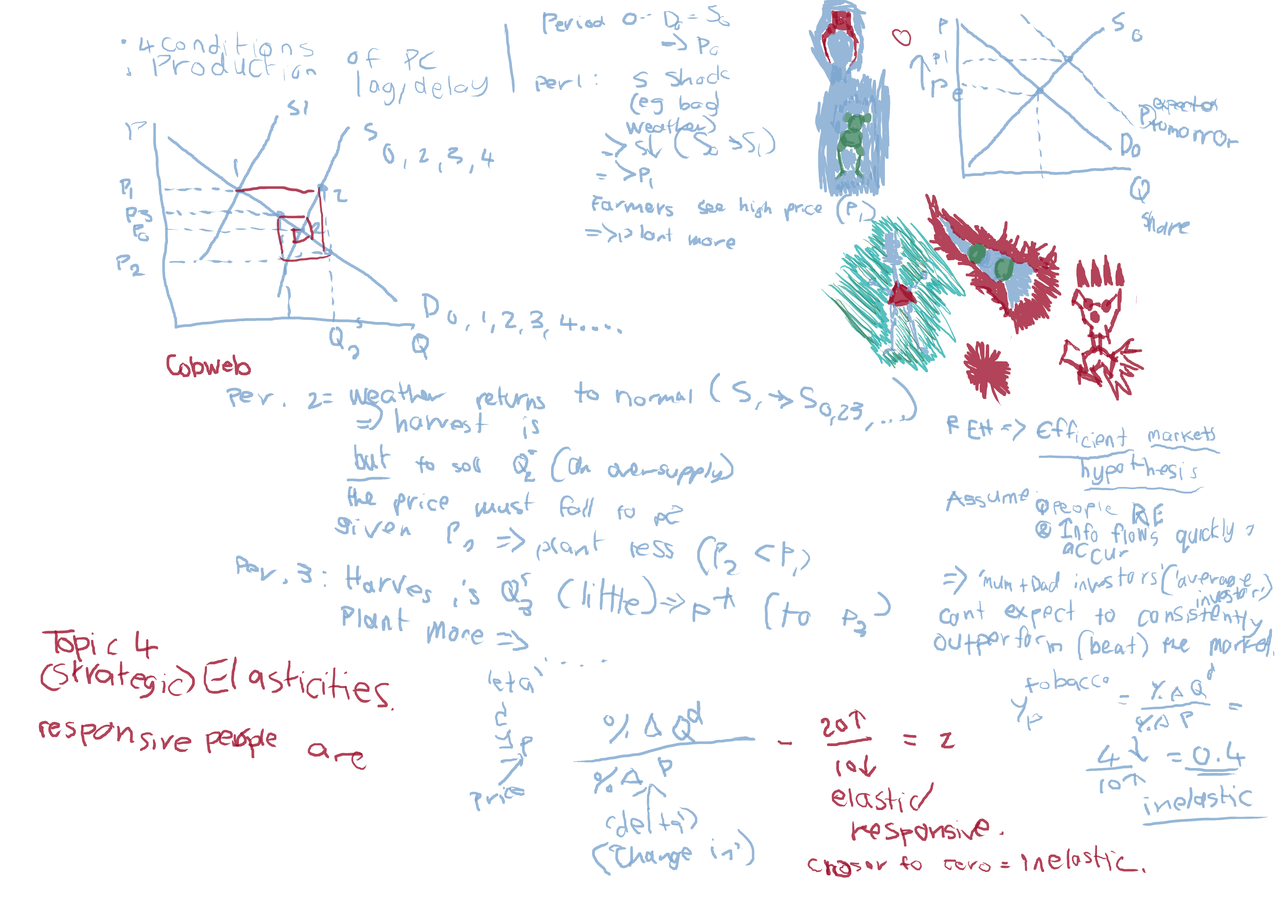 • 4 conditions of PC
• Production lag/delay
Period 0 - D₀ = S₀
=> P₀
per 1: S shock
(eg bad
weather)
=> S↓ (S₀ → S₁)
=> P₁
Farmers see high price (P₁)
=> plant more
P
S1
S 0, 2, 3, 4
1
2
P₁
P3
P₀
P₂
D 0, 1, 2, 3, 4....
Q₂
Q
Cobweb
P
S₀
↑ P1
Pe
D tomorrow
D₀
Q
share
Per. 2 = weather returns to normal (S₁ → S 0,23,...)
=> harvest is
but to sell Q₂ˢ (an oversupply)
the price must fall to P2
given P₂ => plant less (P₂ < P₁)
Per. 3: Harves is Q₃ˢ (little) => P↑ (to P₃)
Plant more =>
....
REH => Efficient markets
hypothesis
Assume:
① people RE
② Info flows quickly &
accur
=> 'Mum + Dad investors' ('average
investors')
cant expect to consistently
outperform (beat) the market.
Topic 4
(strategic) Elasticities.
responsive people are
'eta'
d
p
price
%ΔQᵈ
%ΔP
'delta'
('Change in')
- 20↑
10↓
= 2
elastic/
responsive.
closer to zero = inelastic.
tobacco
p
= %ΔQᵈ
%ΔP
=
4↓
10↑
= 0.4
inelastic